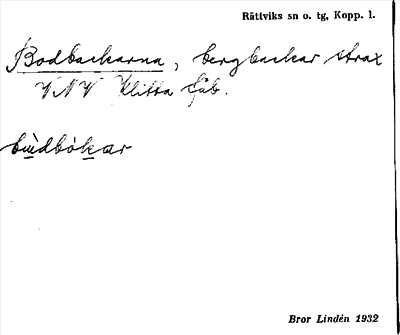 Rättviks sn o. tg, Kopp. l.
Bodbackarna, bergbackar strax
VNV Klitta fäb.
bùdbòkar
Bror Lindén 1932